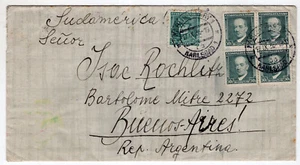 Sudamérica!
Señor
Isac Rochlitz
Bartolome Mitre 2272
Buenos-Aires!
Rep. Argentina